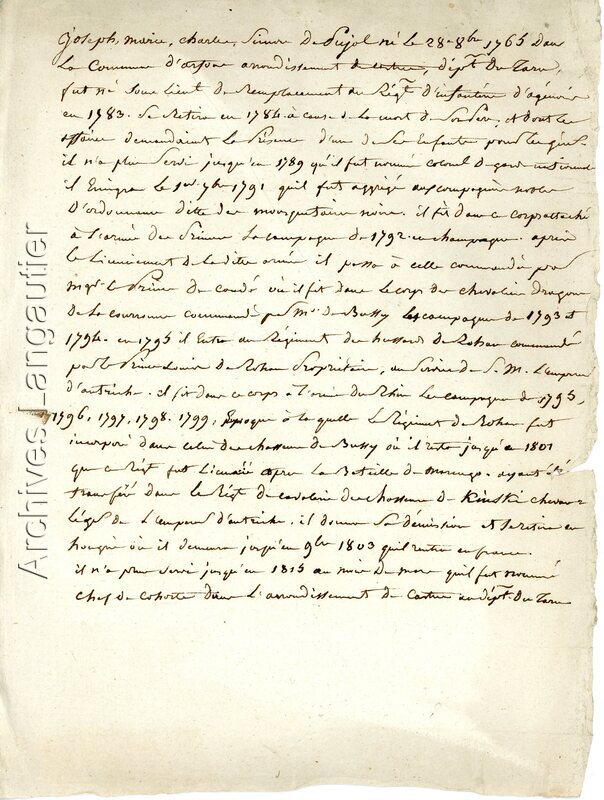 Joseph, marie, charles, Simon De Pujol né le 28 8bre 1765 Dans
La Commune d'arfons arrondissement de castres, dépt. Du Tarn,
fut né Sous Lieut. De Remplacement au Régt. D'Infanterie d'agénois
en 1783. Se Retira en 1784 à cause de la mort de Son Père, et dont les
affaires demandaient la Présence d'un de Ses Enfants pour les gérer.
il n'a plus Servi jusqu'en 1789 qu'il fut nommé colonel De garde nationale
il Emigra le 1er 7bre 1791 qu'il fut aggrégé aux compagnies nobles
D'ordonnance Ditte des mousquetaires noirs. il fit dans ce corps attaché
à L'armée des Princes La campagne de 1792 en champagne. après
le Licenciement de la ditte armée il passa à celle commandée par
mgr. le Prince de condé où il fit dans le corps des chevaliers Dragons
De la couronne commandé par Mr. de Bussy les campagnes de 1793 et
1794. en 1795 il Entra au Régiment des hussards De Rohan commandé
par le Prince Louis de Rohan Propriétaire, au Service de S. M. L'empereur
d'autriche. il fit dans ce corps à l'armée du Rhin Les campagnes de 1795,
1796, 1797, 1798, 1799, Epoque à la quelle le Régiment de Rohan fut
incorporé dans celui des chasseurs de Bussy où il resta jusqu'en 1801
que ce Régt fut Licencié après la Bataille de Marengo. ayant été
transféré dans le Régt. De cavalerie des chasseurs de Kinski chevaux
légers de L'empereur d'autriche. il donna Sa démission et Se retira en
hongrie où il demeura jusqu'en 9bre 1803 qu'il rentra en france.
il n'a plus Servi jusqu'en 1815 au mois De mars qu'il fut nommé
chef de cohorte dans L'arrondissement de Castres au dépt. Du Tarn
Archives Langautier